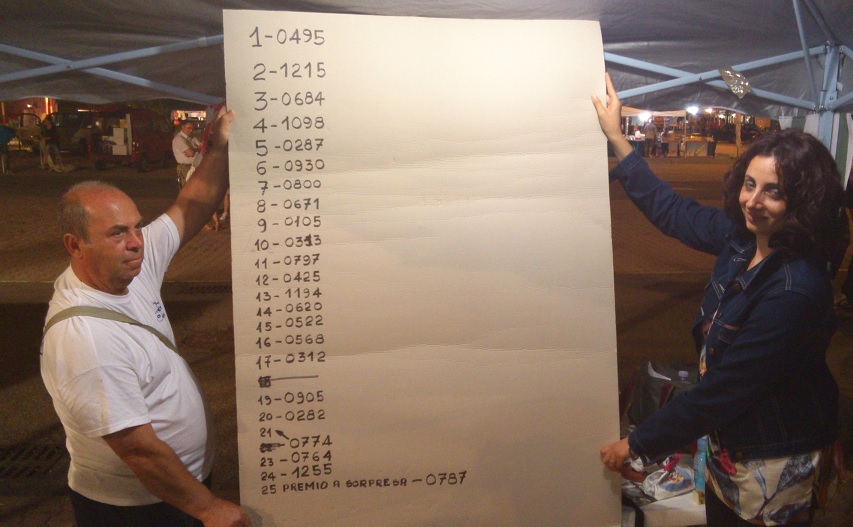 1-0495
2-1215
3-0684
4-1098
5-0287
6-0930
7-0800
8-0671
9-0105
10-0313
11-0797
12-0425
13-1194
14-0620
15-0522
16-0568
17-0312
18
19-0905
20-0282
21
-0774
23-0764
24-1255
25 PREMIO A SORPRESA -0787